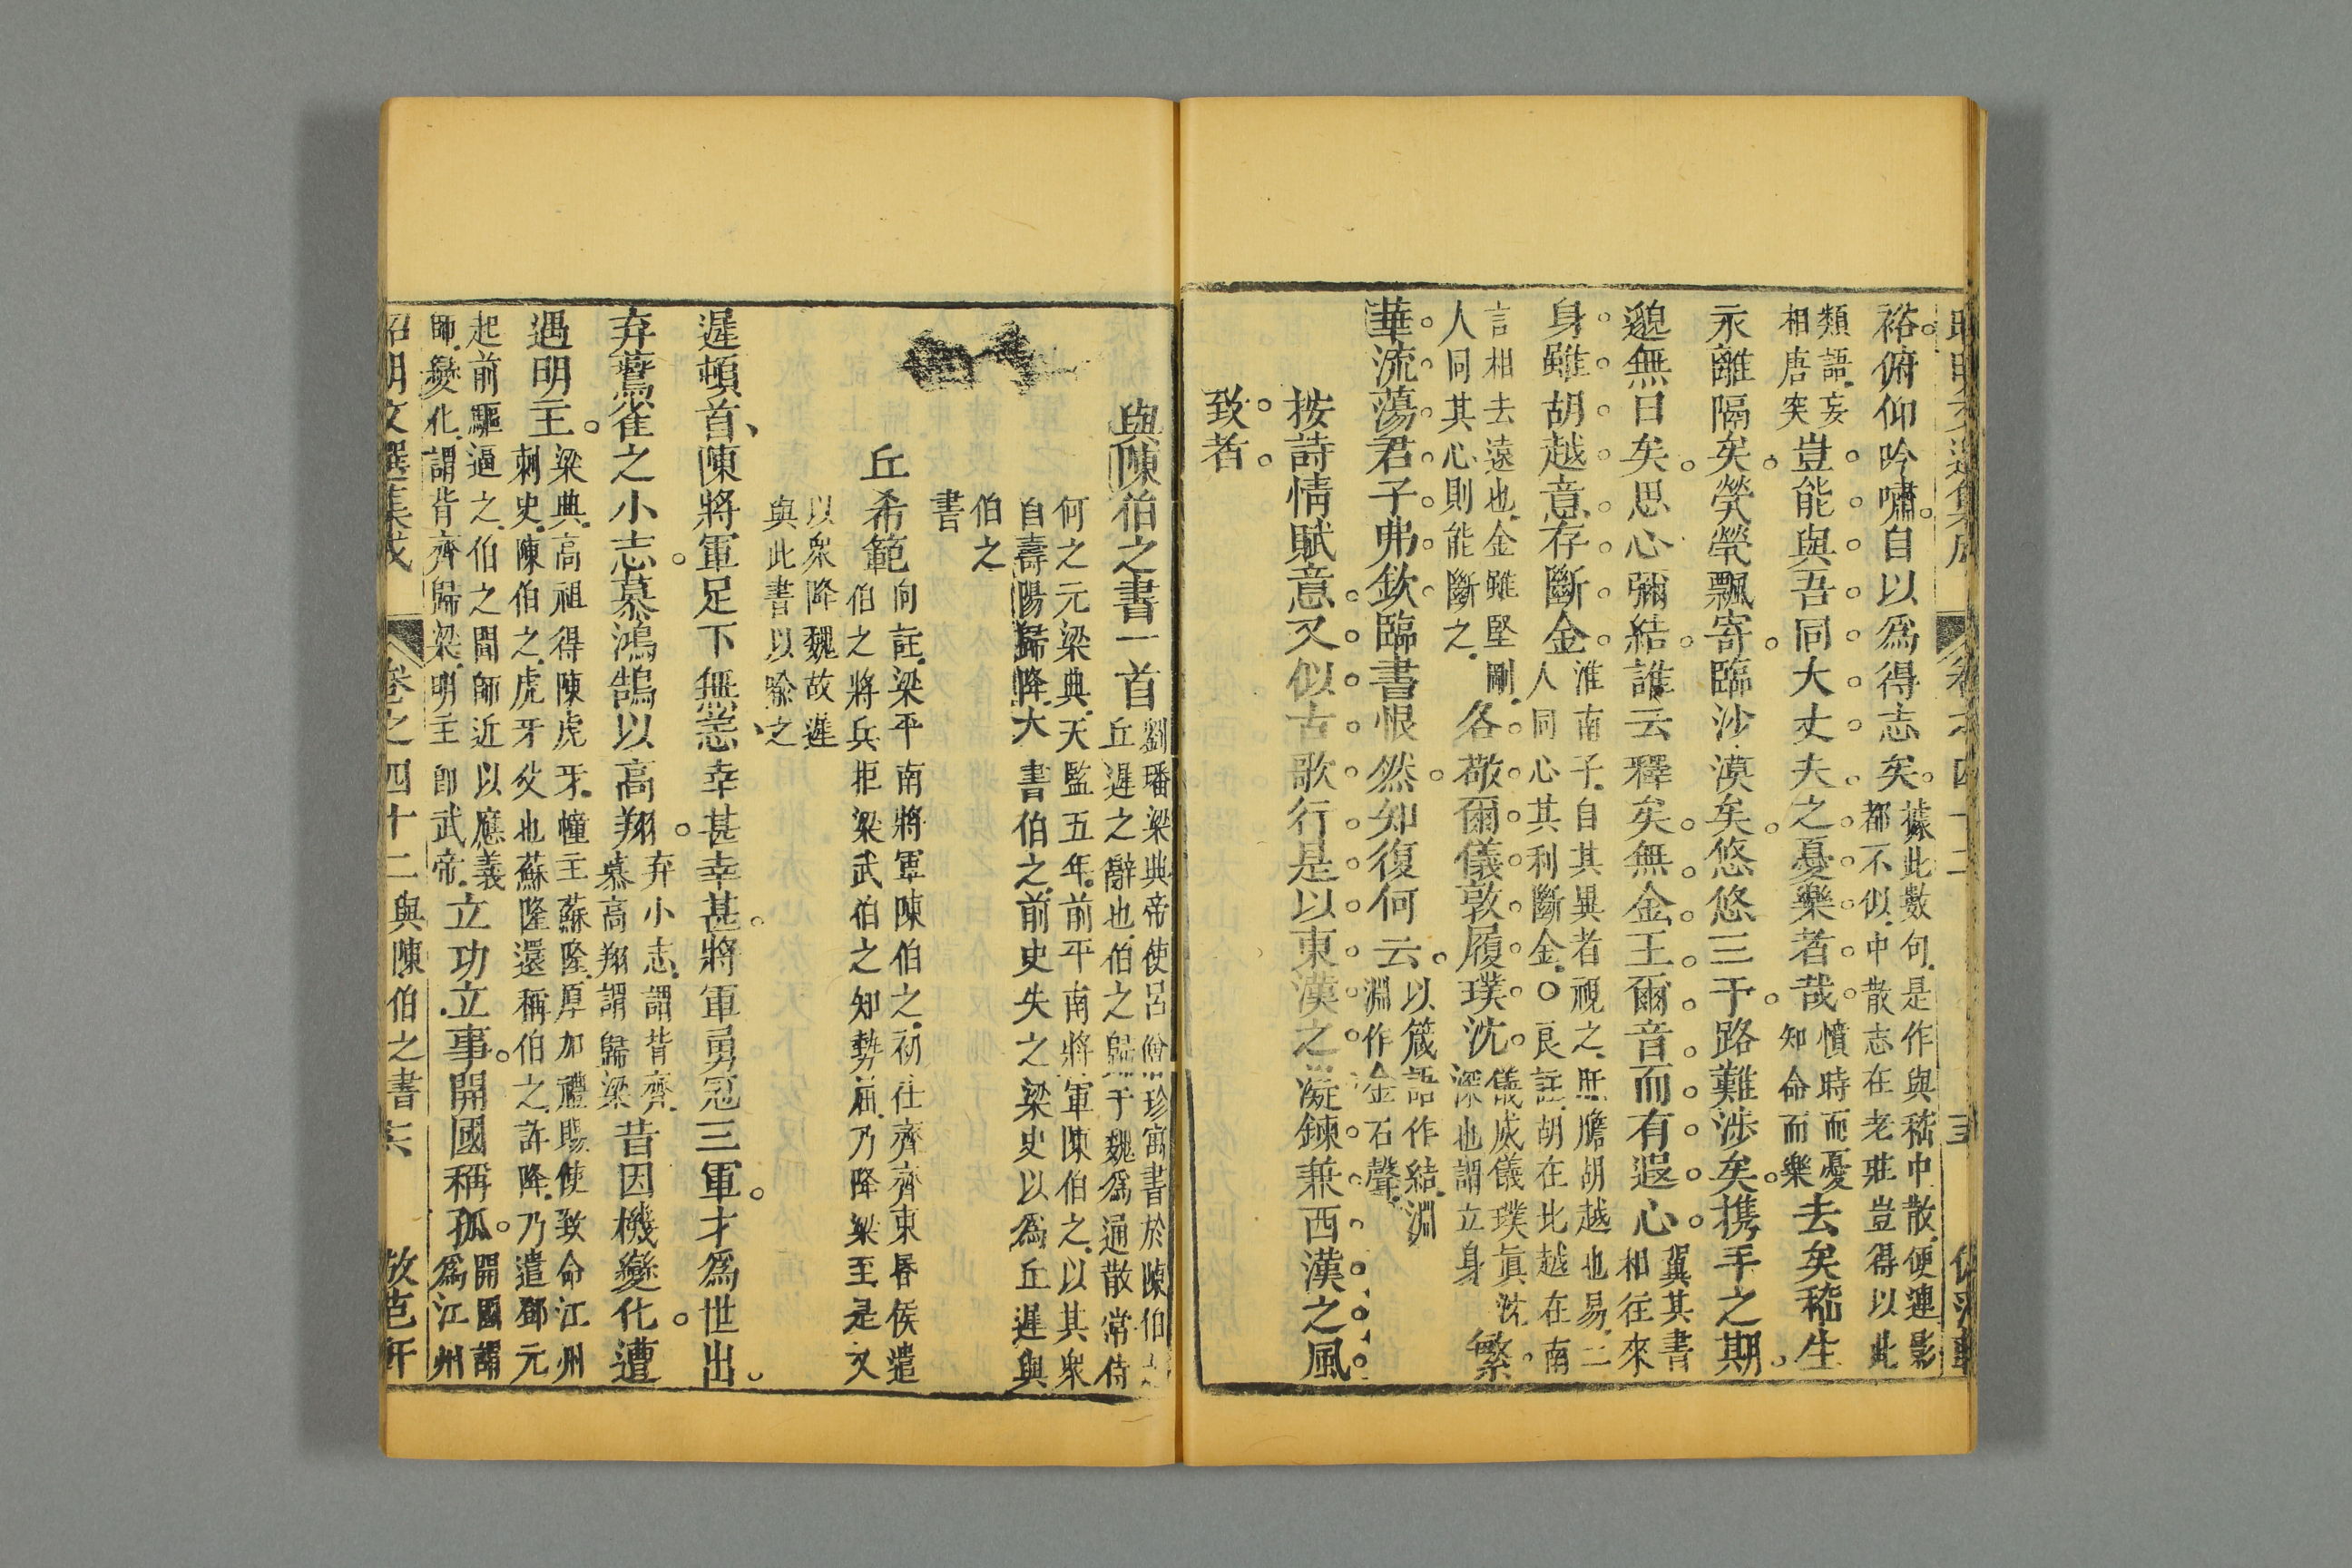 裕俯仰吟嘯自以爲得志矣據此數句是作與嵇中散便連影
都不似中散志在老莊豈得以此
類語妄
相唐突豈能與吾同大丈夫之憂樂者哉憤時而憂
知命而樂去矣嵇生
永離隔矣煢煢飄寄臨沙漠矣悠悠三千路難涉矣携手之期
邈無日矣思心彌結誰云釋矣無金玉爾音而有遐心冀其書
相往來
身雖胡越意存斷金淮南子自其異者視之肝膽胡越也易二
人同心其利斷金○良註胡在北越在南
言相去遠也金雖堅剛
人同其心則能斷之各敬爾儀敦履璞沈儀威儀璞眞沈
深也謂立身繁
華流蕩君子弗欽臨書恨然知復何云以箴語作結淵
淵作金石聲
按詩情賦意又似古歌行是以東漢之凝鍊兼西漢之風
致者
與陳伯之書一首劉璠梁典帝使呂僧珍寓書於陳伯之
丘遲之辭也伯之歸于魏爲通散常侍
何之元梁典天監五年前平南將軍陳伯之以其衆
自壽陽歸降大書伯之前史失之梁史以爲丘遲與
伯之
書
丘希範向註梁平南將軍陳伯之初仕齊齊東昏侯遣
伯之將兵拒梁武伯之知勢屈乃降梁至是又
以衆降魏故遲
與此書以喻之
遲頓首陳將軍足下無恙幸甚幸甚將軍勇冠三軍才爲世出
弃鷰雀之小志慕鴻鵠以高翔弃小志謂背齊
慕高翔謂歸梁昔因機變化遭
遇明主梁典高祖得陳虎牙幢主蘇隆厚加禮賜使致命江州
刺史陳伯之虎牙父也蘇隆還稱伯之許降乃遣鄧元
起前驅逼之伯之聞師近以應義
師變化謂背齊歸梁明主卽武帝立功立事開國稱孤開國謂
爲江州
昭明文選集成 卷之四十二與陳伯之書